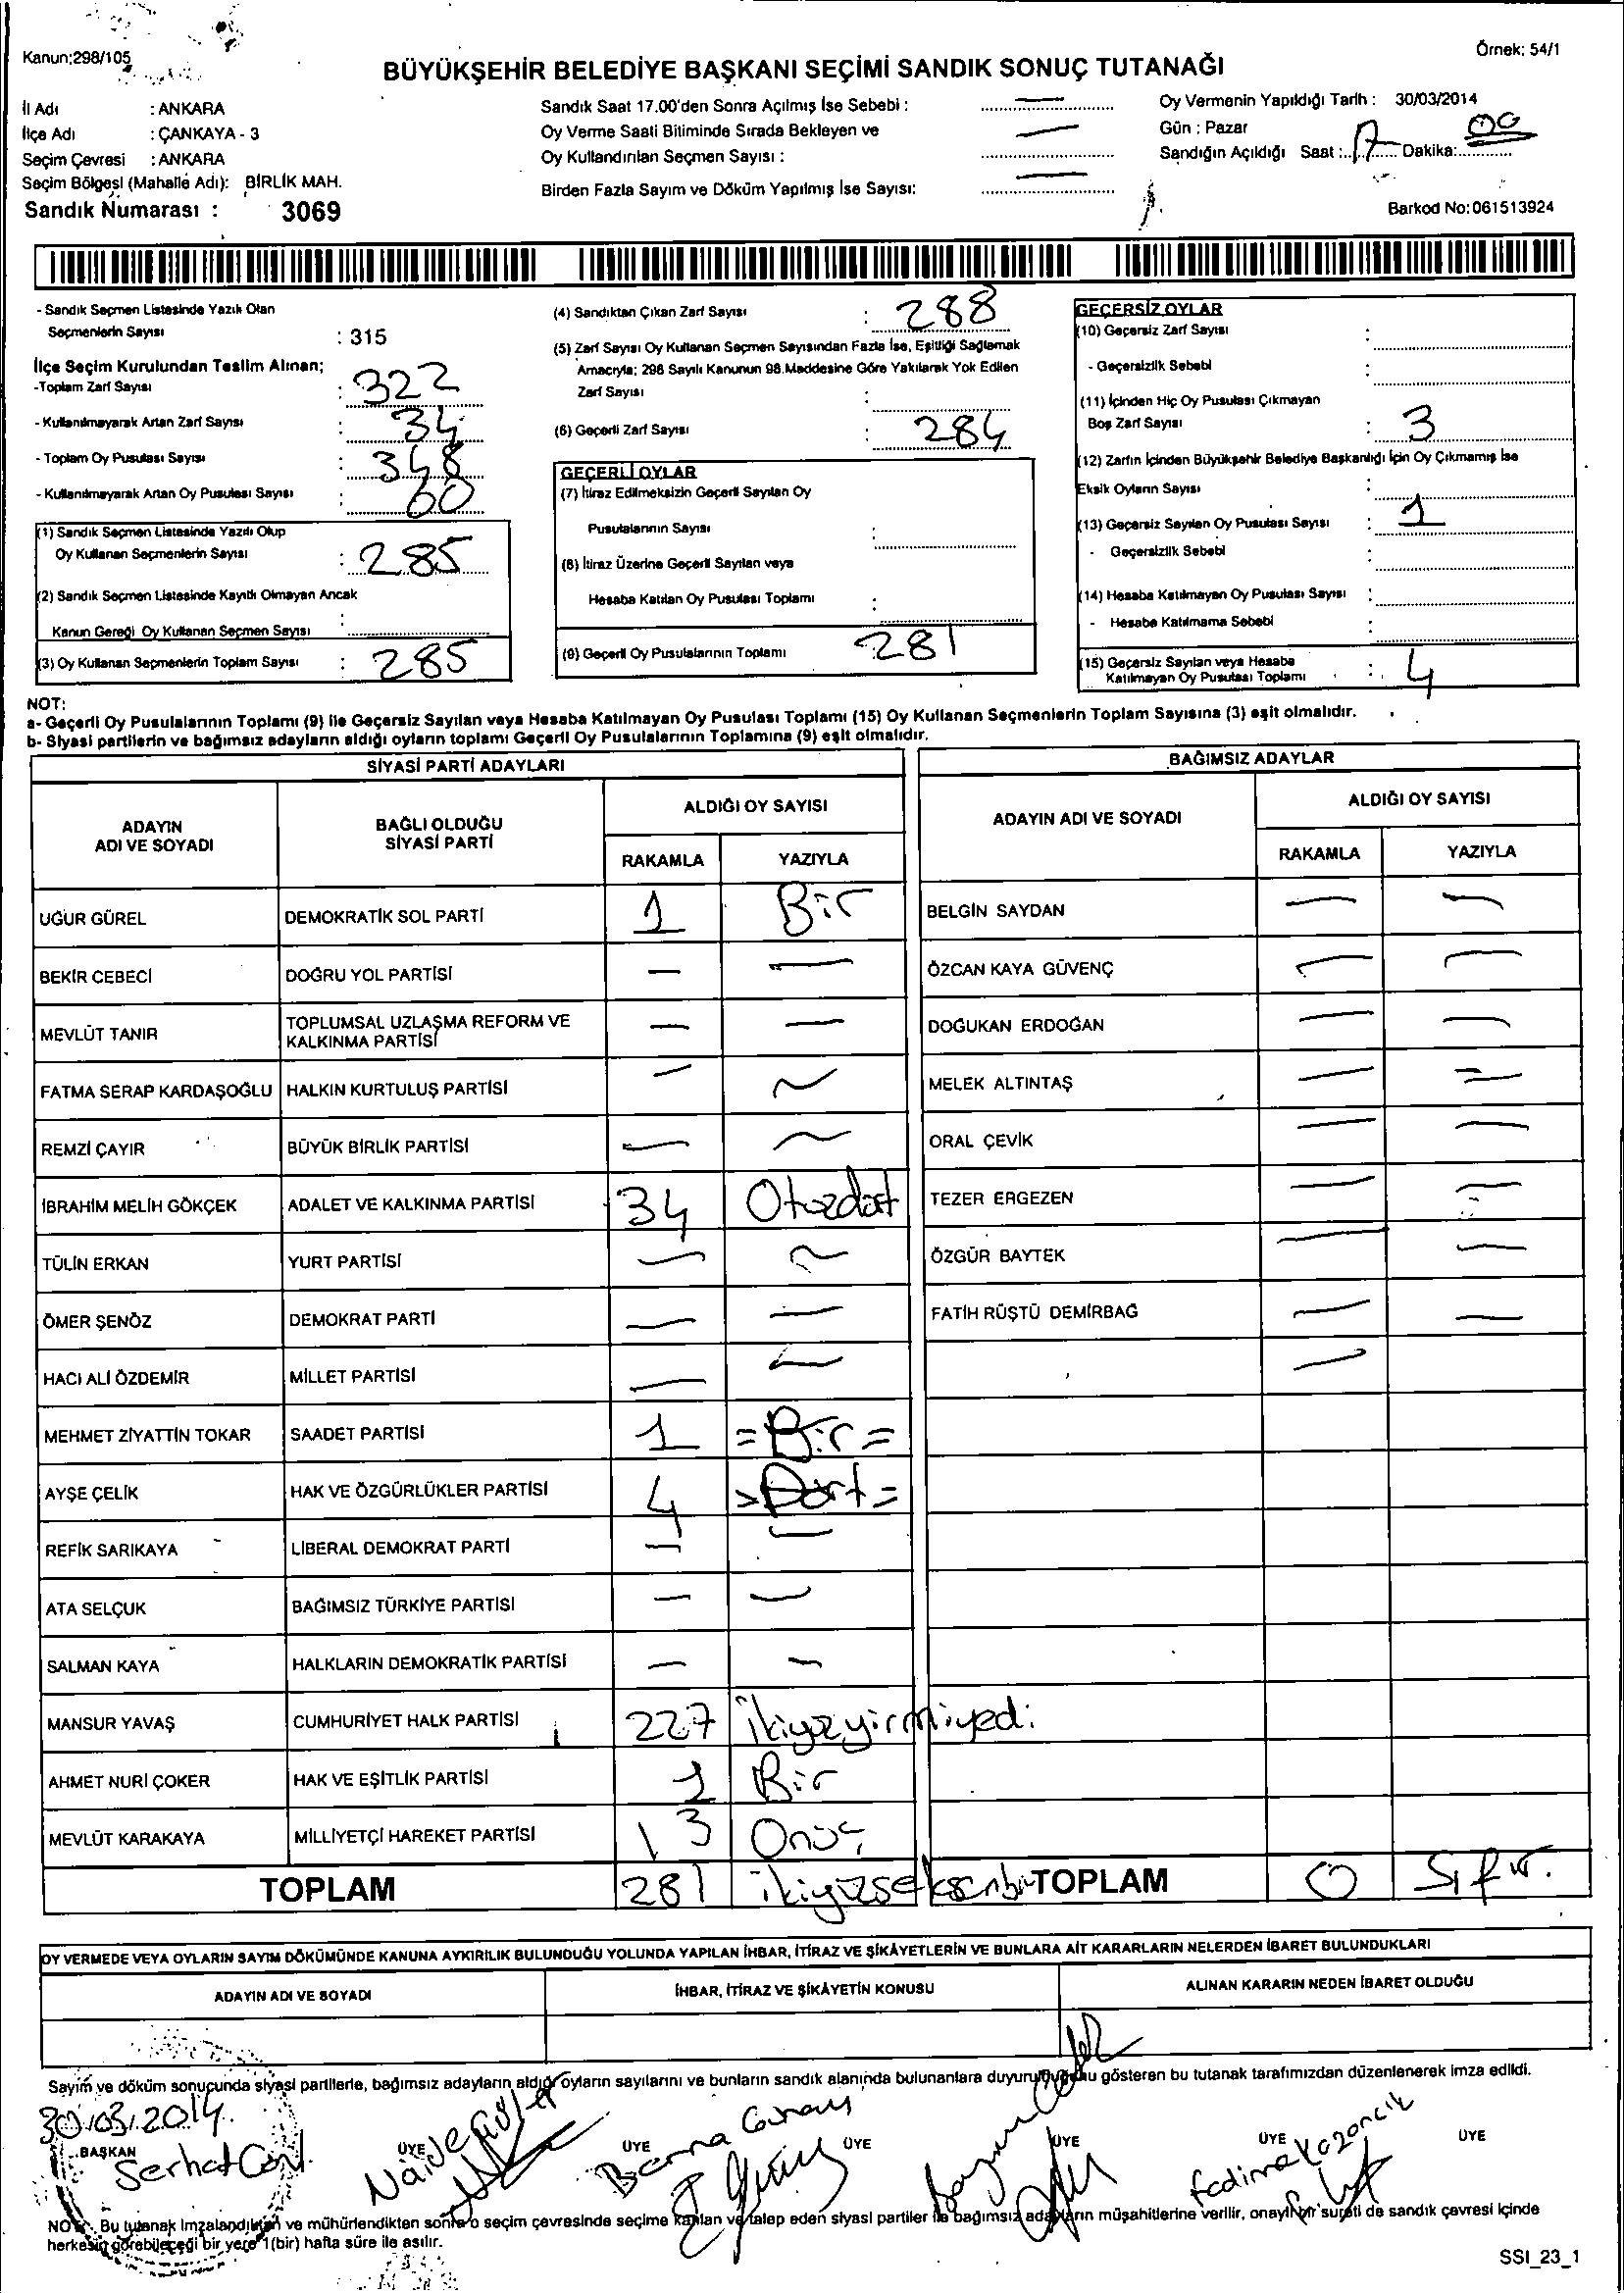 Kanun:298/105
Örnek: 54/1
BÜYÜKŞEHİR BELEDİYE BAŞKANI SEÇİMİ SANDIK SONUÇ TUTANAĞI
İl Adı : ANKARA
İlçe Adı : ÇANKAYA - 3
Seçim Çevresi : ANKARA
Seçim Bölgesi (Mahalle Adı): BİRLİK MAH.
Sandık Numarası : 3069
Sandık Saat 17.00'den Sonra Açılmış İse Sebebi : —
Oy Verme Saati Bitiminde Sırada Bekleyen ve —
Oy Kullandırılan Seçmen Sayısı :
Birden Fazla Sayım ve Döküm Yapılmış İse Sayısı: —
Oy Vermenin Yapıldığı Tarih : 30/03/2014
Gün : Pazar
Sandığın Açıldığı Saat : 17 Dakika: 00
Barkod No:061513924
- Sandık Seçmen Listesinde Yazılı Olan
Seçmenlerin Sayısı : 315
İlçe Seçim Kurulundan Teslim Alınan;
-Toplam Zarf Sayısı : 322
- Kullanılmayarak Artan Zarf Sayısı : 34
- Toplam Oy Pusulası Sayısı : 348
- Kullanılmayarak Artan Oy Pusulası Sayısı : 60
(1) Sandık Seçmen Listesinde Yazılı Olup
Oy Kullanan Seçmenlerin Sayısı : 285
(2) Sandık Seçmen Listesinde Kayıtlı Olmayan Ancak
Kanun Gereği Oy Kullanan Seçmen Sayısı :
(3) Oy Kullanan Seçmenlerin Toplam Sayısı : 285
(4) Sandıktan Çıkan Zarf Sayısı : 288
(5) Zarf Sayısı Oy Kullanan Seçmen Sayısından Fazla İse, Eşitliği Sağlamak
Amacıyla; 298 Sayılı Kanunun 98.Maddesine Göre Yakılarak Yok Edilen
Zarf Sayısı :
(6) Geçerli Zarf Sayısı : 284
GEÇERLİ OYLAR
(7) İtiraz Edilmeksizin Geçerli Sayılan Oy
Pusulalarının Sayısı :
(8) İtiraz Üzerine Geçerli Sayılan veya
Hesaba Katılan Oy Pusulası Toplamı :
(9) Geçerli Oy Pusulalarının Toplamı 281
GEÇERSİZ OYLAR
(10) Geçersiz Zarf Sayısı :
- Geçersizlik Sebebi :
(11) İçinden Hiç Oy Pusulası Çıkmayan
Boş Zarf Sayısı : 3
(12) Zarfın İçinden Büyükşehir Belediye Başkanlığı İçin Oy Çıkmamış İse
Eksik Oyların Sayısı :
(13) Geçersiz Sayılan Oy Pusulası Sayısı : 1
- Geçersizlik Sebebi
(14) Hesaba Katılmayan Oy Pusulası Sayısı :
- Hesaba Katılmama Sebebi :
(15) Geçersiz Sayılan veya Hesaba
Katılmayan Oy Pusulası Toplamı : 4
NOT:
a- Geçerli Oy Pusulalarının Toplamı (9) ile Geçersiz Sayılan veya Hesaba Katılmayan Oy Pusulası Toplamı (15) Oy Kullanan Seçmenlerin Toplam Sayısına (3) eşit olmalıdır.
b- Siyasi partilerin ve bağımsız adayların aldığı oyların toplamı Geçerli Oy Pusulalarının Toplamına (9) eşit olmalıdır.
SİYASİ PARTİ ADAYLARI
ADAYIN ADI VE SOYADI
BAĞLI OLDUĞU SİYASİ PARTİ
ALDIĞI OY SAYISI
RAKAMLA YAZIYLA
UĞUR GÜREL DEMOKRATİK SOL PARTİ 1 Bir
BEKİR CEBECİ DOĞRU YOL PARTİSİ — —
MEVLÜT TANIR TOPLUMSAL UZLAŞMA REFORM VE KALKINMA PARTİSİ — —
FATMA SERAP KARDAŞOĞLU HALKIN KURTULUŞ PARTİSİ — —
REMZİ ÇAYIR BÜYÜK BİRLİK PARTİSİ — —
İBRAHİM MELİH GÖKÇEK ADALET VE KALKINMA PARTİSİ 34 Otuzdört
TÜLİN ERKAN YURT PARTİSİ — —
ÖMER ŞENÖZ DEMOKRAT PARTİ — —
HACI ALİ ÖZDEMİR MİLLET PARTİSİ — —
MEHMET ZİYATTİN TOKAR SAADET PARTİSİ 1 =Bir=
AYŞE ÇELİK HAK VE ÖZGÜRLÜKLER PARTİSİ 4 =Dört=
REFİK SARIKAYA LİBERAL DEMOKRAT PARTİ — —
ATA SELÇUK BAĞIMSIZ TÜRKİYE PARTİSİ — —
SALMAN KAYA HALKLARIN DEMOKRATİK PARTİSİ — —
MANSUR YAVAŞ CUMHURİYET HALK PARTİSİ 227 İkiyüzyirmiyedi
AHMET NURİ ÇOKER HAK VE EŞİTLİK PARTİSİ 1 Bir
MEVLÜT KARAKAYA MİLLİYETÇİ HAREKET PARTİSİ 13 Onüç
TOPLAM 281 ikiyüzseksenbir
BAĞIMSIZ ADAYLAR
ADAYIN ADI VE SOYADI
ALDIĞI OY SAYISI
RAKAMLA YAZIYLA
BELGİN SAYDAN — —
ÖZCAN KAYA GÜVENÇ — —
DOĞUKAN ERDOĞAN — —
MELEK ALTINTAŞ — —
ORAL ÇEVİK — —
TEZER ERGEZEN — —
ÖZGÜR BAYTEK — —
FATİH RÜŞTÜ DEMİRBAĞ — —
—
TOPLAM 0 Sıfır.
OY VERMEDE VEYA OYLARIN SAYIM DÖKÜMÜNDE KANUNA AYKIRILIK BULUNDUĞU YOLUNDA YAPILAN İHBAR, İTİRAZ VE ŞİKÂYETLERİN VE BUNLARA AİT KARARLARIN NELERDEN İBARET BULUNDUKLARI
ADAYIN ADI VE SOYADI
İHBAR, İTİRAZ VE ŞİKÂYETİN KONUSU
ALINAN KARARIN NEDEN İBARET OLDUĞU
Sayım ve döküm sonucunda siyasi partilerle, bağımsız adayların aldığı oyların sayılarını ve bunların sandık alanında bulunanlara duyurulduğunu gösteren bu tutanak tarafımızdan düzenlenerek imza edildi.
30.03.2014
BAŞKAN ÜYE ÜYE ÜYE ÜYE ÜYE ÜYE
Serhat
Naide Güler
Berna Günay
Fadime Kazancık
NOT: Bu tutanak imzalandıktan ve mühürlendikten sonra o seçim çevresinde seçime katılan ve talep eden siyasi partiler ile bağımsız adayların müşahitlerine verilir, onaylı bir sureti de sandık çevresi içinde
herkesin görebileceği bir yere 1(bir) hafta süre ile asılır.
SSI_23_1